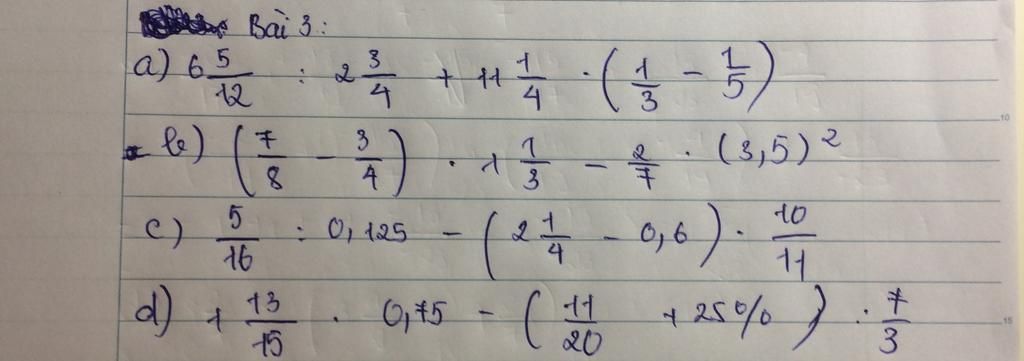 Bài 3:
a) 6 5/12 : 2 3/4 + 11 1/4 . (1/3 - 1/5)
b) (7/8 - 3/4) . 1 1/3 - 2/7 . (3,5)²
c) 5/16 : 0,125 - (2 1/4 - 0,6) . 10/11
d) 1 13/15 . 0,75 - (11/20 + 25%) : 7/3
10
15